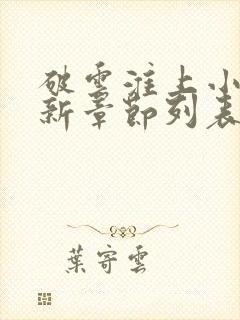 破雲淮上小
新章節列表
葉寄雲